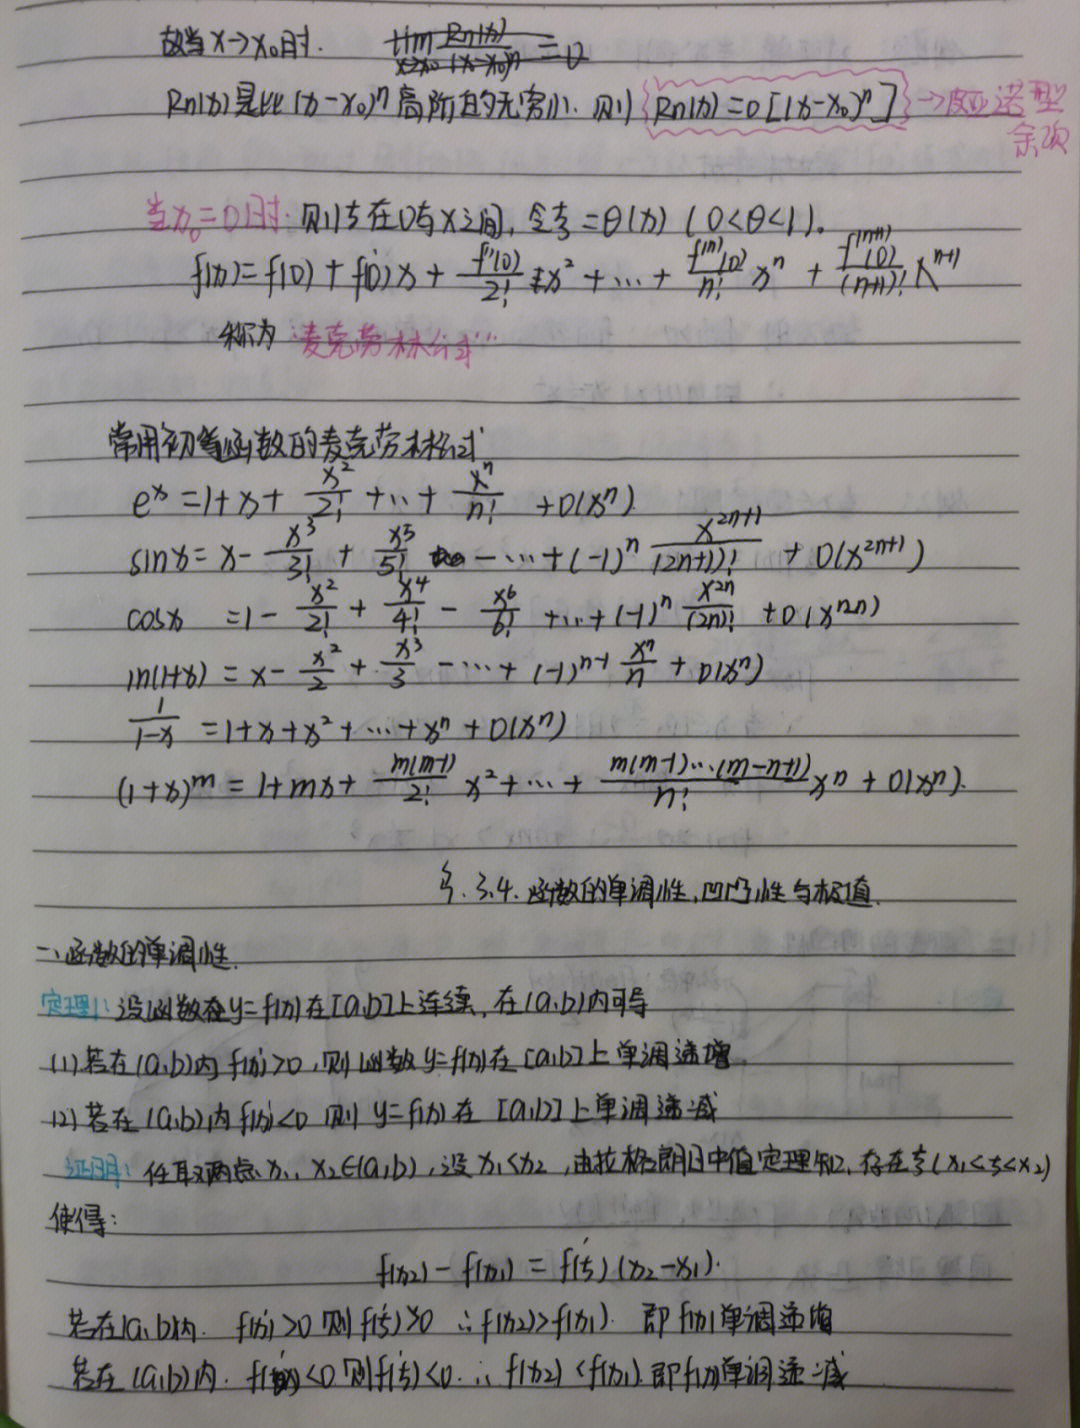 故当x→x₀时. lim_{x→x₀} Rn(x)/(x-x₀)ⁿ = 0
Rn(x)是比(x-x₀)ⁿ高阶的无穷小. 则 Rn(x)=o[(x-x₀)ⁿ] →皮亚诺型
余项
当x₀=0时. 则ξ在0与x之间, 令ξ=θ(x) (0<θ<1).
f(x)=f(0)+f'(0)x+f''(0)/2! x²+…+f⁽ⁿ⁾(0)/n! xⁿ+f⁽ⁿ⁺¹⁾(0)/(n+1)! xⁿ⁺¹
称为"麦克劳林公式"
常用初等函数的麦克劳林公式
eˣ=1+x+x²/2!+…+xⁿ/n!+o(xⁿ)
sinx=x-x³/3!+x⁵/5!-…+(-1)ⁿ x²ⁿ⁺¹/(2n+1)!+o(x²ⁿ⁺¹)
cosx=1-x²/2!+x⁴/4!-x⁶/6!+…+(-1)ⁿ x²ⁿ/(2n)!+o(x²ⁿ)
ln(1+x)=x-x²/2+x³/3-…+(-1)ⁿ⁻¹ xⁿ/n+o(xⁿ)
1/(1-x)=1+x+x²+…+xⁿ+o(xⁿ)
(1+x)ᵐ=1+mx+m(m-1)/2! x²+…+m(m-1)…(m-n+1)/n! xⁿ+o(xⁿ).
§.3.4.函数的单调性,凹凸性与极值.
一、函数的单调性.
定理1: 设函数在y=f(x)在[a,b]上连续, 在(a,b)内可导
(1)若在(a,b)内f'(x)>0,则函数y=f(x)在[a,b]上单调递增.
(2)若在(a,b)内f'(x)<0 则y=f(x)在[a,b]上单调递减
证明: 任取两点x₁,x₂∈(a,b),设x₁<x₂,由拉格朗日中值定理知,存在ξ(x₁<ξ<x₂)
使得:
f(x₂)-f(x₁)=f'(ξ)(x₂-x₁).
若在(a,b)内. f'(x)>0则f'(ξ)>0 ∴f(x₂)>f(x₁). 即f(x)单调递增
若在(a,b)内. f'(x)<0则f'(ξ)<0.∴f(x₂)<f(x₁).即f(x)单调递减